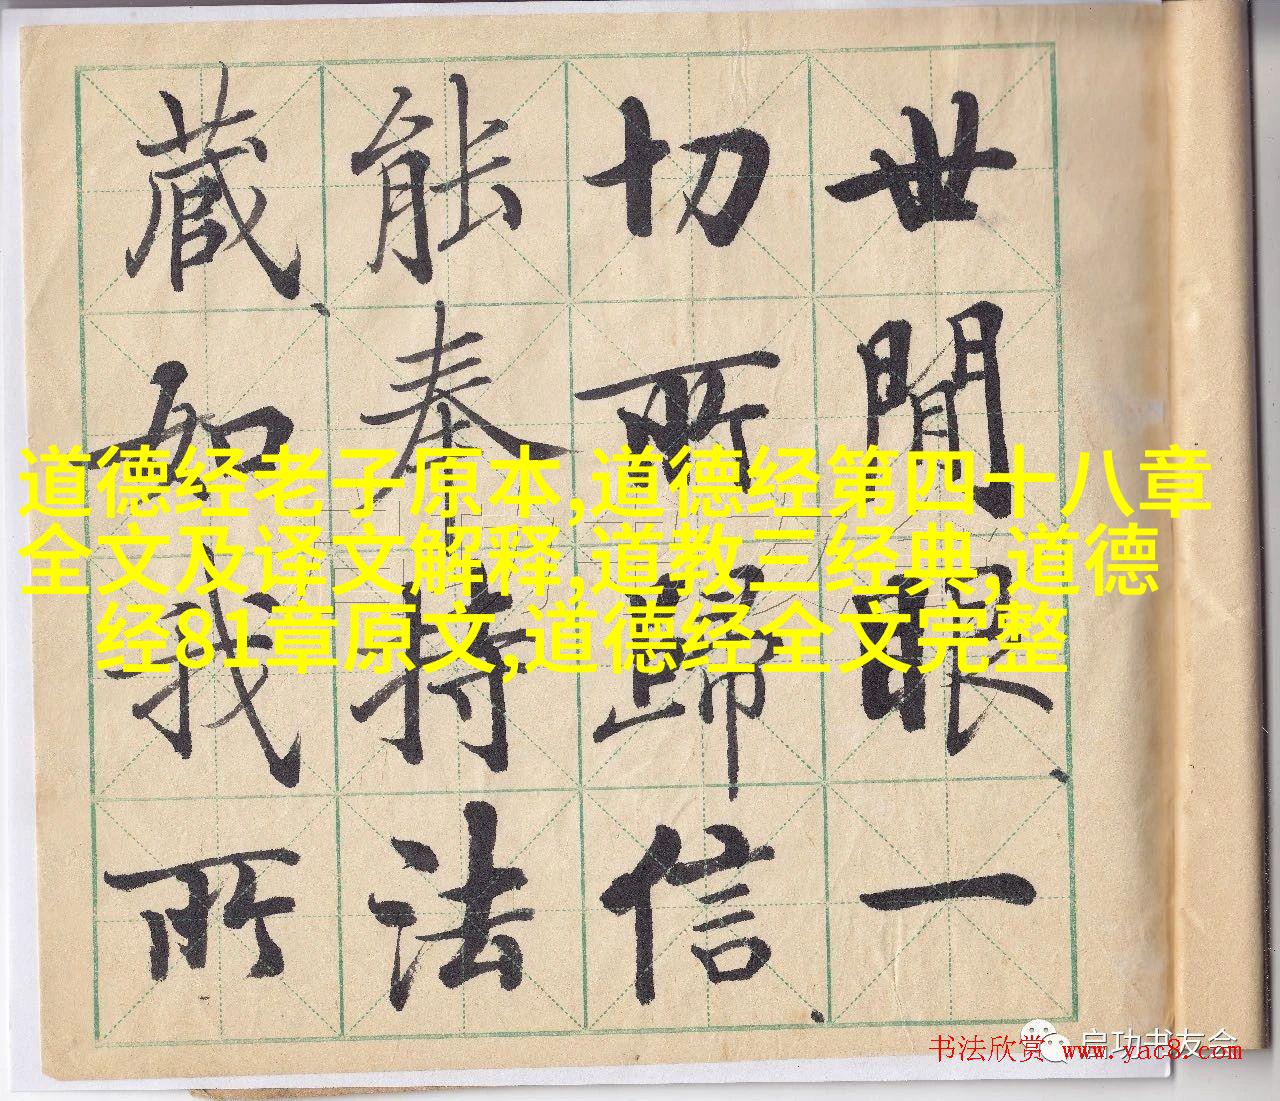 世間眼一
切所歸信
能奉持法
藏如我所
道德经老子原本,道德经第四十八章
全文及译文解释,道教三经典,道德
经81章原文,道德经全文完整
启功书友会
书法欣赏 www.yac8.com